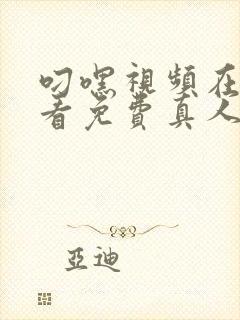 叼嘿視頻在
看免費真人
亞迪